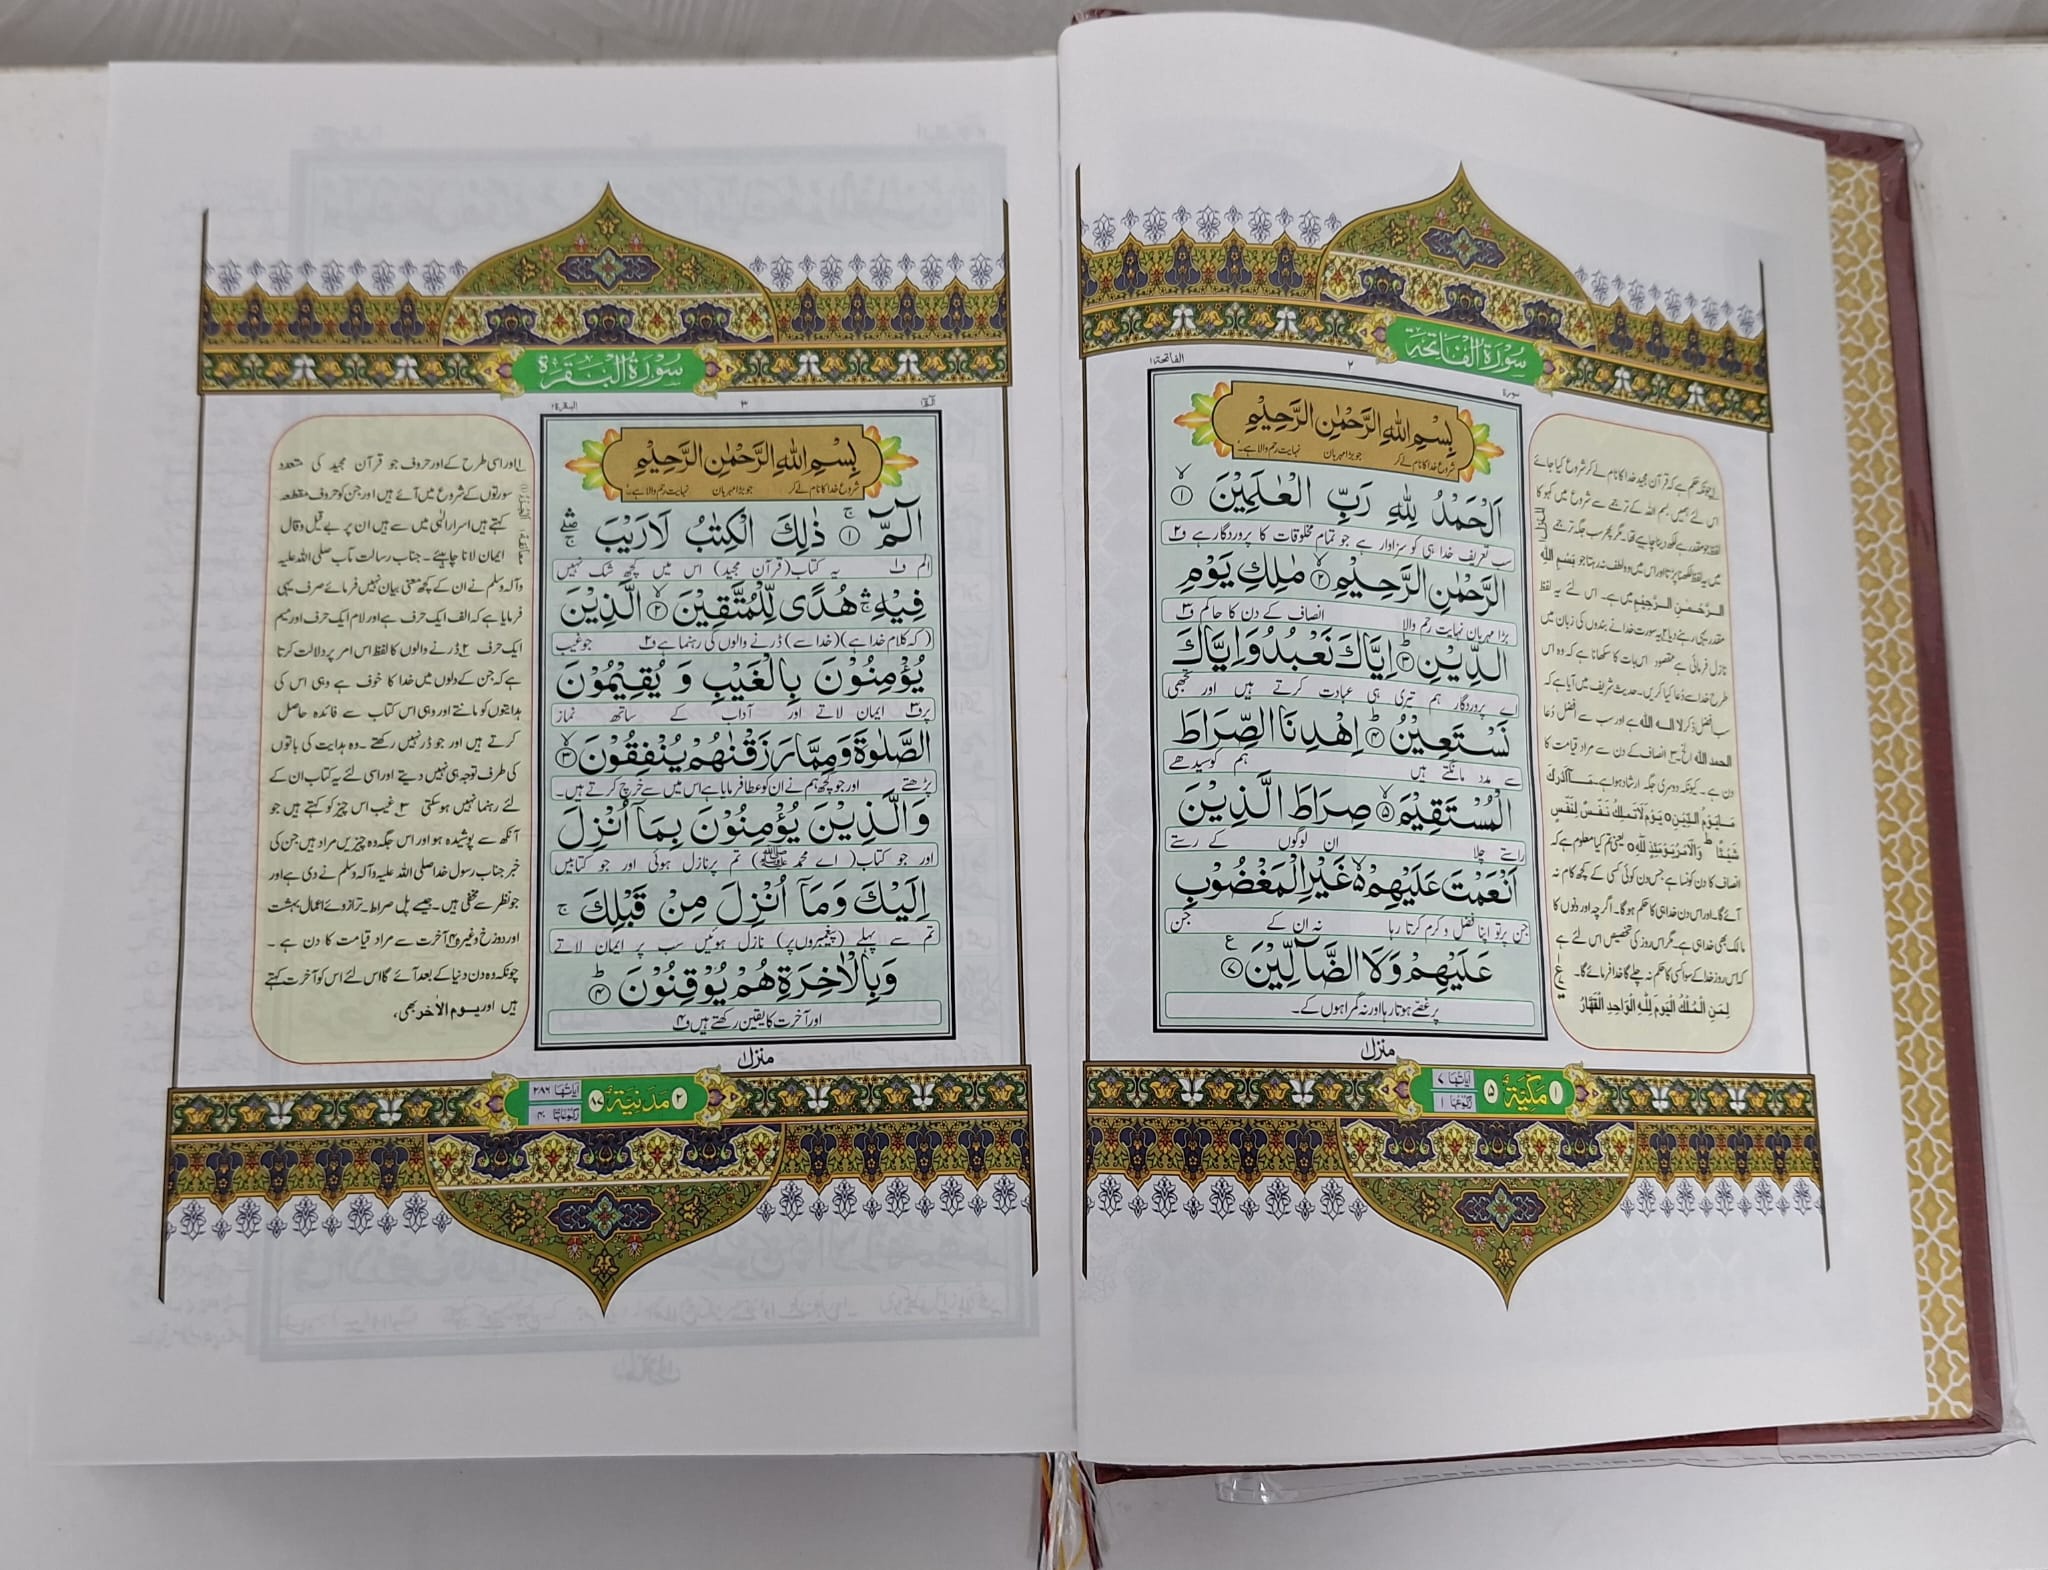 سُوْرَةُ الْفَاتِحَةِ
الفاتحة ١
٢
سورة
بِسْمِ اللهِ الرَّحْمٰنِ الرَّحِيْمِ
شروع خدا کا نام لے کر جو بڑا مہربان نہایت رحم والا ہے۔
اَلْحَمْدُ لِلّٰهِ رَبِّ الْعٰلَمِيْنَ ۙ﴿١﴾
سب تعریف خدا ہی کو سزاوار ہے جو تمام مخلوقات کا پروردگار ہے ف۲
الرَّحْمٰنِ الرَّحِيْمِ ۙ﴿٢﴾ مٰلِكِ يَوْمِ
بڑا مہربان نہایت رحم والا انصاف کے دن کا حاکم ف۳
الدِّيْنِ ؕ﴿٣﴾ اِيَّاكَ نَعْبُدُ وَ اِيَّاكَ
اے پروردگار ہم تیری ہی عبادت کرتے ہیں اور تجھی
نَسْتَعِيْنُ ؕ﴿٤﴾ اِهْدِنَا الصِّرَاطَ
سے مدد مانگتے ہیں ہم کو سیدھے
الْمُسْتَقِيْمَ ۙ﴿٥﴾ صِرَاطَ الَّذِيْنَ
راستے چلا ان لوگوں کے رستے
اَنْعَمْتَ عَلَيْهِمْ ۙ۬ غَيْرِ الْمَغْضُوْبِ
جن پر تو اپنا فضل و کرم کرتا رہا نہ ان کے جن
عَلَيْهِمْ وَلَا الضَّآلِّيْنَ ﴿٧﴾ ع
پر غصے ہوتا رہا اور نہ گمراہوں کے۔
منزل
۱؎ چونکہ حکم ہے کہ قرآن مجید خدا کا نام لے کر شروع کیا جائے
اس لئے ہمیں بسم اللہ کے ترجمے سے شروع میں کہو کا
لفظ جو مقدر ہے لکھ دینا چاہیے تھا۔ مگر پھر سب جگہ ترجمے
میں یہ لفظ لکھنا پڑتا اور اس میں وہ لطف نہ رہتا جو بِسْمِ اللهِ
الرَّحْمٰنِ الرَّحِيْمِ میں ہے۔ اس لئے یہ لفظ
مقدر ہی رہنے دیا ۲؎ یہ سورت خدا نے بندوں کی زبان میں
نازل فرمائی ہے مقصود اس بات کا سکھانا ہے کہ وہ اس
طرح خدا سے دُعا کیا کریں۔ حدیث شریف میں آیا ہے کہ
سب افضل ذکر لا الہ اللہ ہے اور سب سے افضل دُعا
الحمد اللہ الخ ۳؎ انصاف کے دن سے مراد قیامت کا
دن ہے۔ کیونکہ دوسری جگہ ارشاد ہوا ہے۔ مَآ اَدْرٰكَ
مَا يَوْمُ الدِّيْنِ ٥ يَوْمَ لَا تَمْلِكُ نَفْسٌ لِّنَفْسٍ
شَيْئًا ؕ وَالْاَمْرُ يَوْمَئِذٍ لِّلّٰهِ ٥ یعنی تم کیا معلوم ہے کہ
انصاف کا دن کونسا ہے جس دن کوئی کسی کے کچھ کام نہ
آئے گا۔ اور اس دن خدا ہی کا حکم ہوگا۔ اگرچہ اور دنوں کا
مالک بھی خدا ہی ہے۔ مگر اس روز کی تخصیص اس لئے ہے
کہ اس روز خدا کے سوا کسی کا حکم نہ چلے گا خدا فرمائے گا۔
لِمَنِ الْمُلْكُ الْيَوْمَ لِلّٰهِ الْوَاحِدِ الْقَهَّارُ
١ مَكِّيَّةٌ ٥
اٰيَاتُهَا ٧
رُكُوْعُهَا ١
سُوْرَةُ الْبَقَرَةِ
البقرة ٢
٣
الٓمّٓ ١
بِسْمِ اللهِ الرَّحْمٰنِ الرَّحِيْمِ
شروع خدا کا نام لے کر جو بڑا مہربان نہایت رحم والا ہے۔
الٓمّٓ ۚ﴿١﴾ ذٰلِكَ الْكِتٰبُ لَا رَيْبَ ۛۖۚ
الم ف۱ یہ کتاب (قرآن مجید) اس میں کچھ شک نہیں
فِيْهِ ۛۚ هُدًى لِّلْمُتَّقِيْنَ ۙ﴿٢﴾ الَّذِيْنَ
(کہ کلام خدا ہے) (خدا سے) ڈرنے والوں کی رہنما ہے ف۲ جو غیب
يُؤْمِنُوْنَ بِالْغَيْبِ وَ يُقِيْمُوْنَ
پر ف۳ ایمان لاتے اور آداب کے ساتھ نماز
الصَّلٰوةَ وَ مِمَّا رَزَقْنٰهُمْ يُنْفِقُوْنَ ۙ﴿٣﴾
پڑھتے اور جو کچھ ہم نے ان کو عطا فرمایا ہے اس میں سے خرچ کرتے ہیں۔
وَ الَّذِيْنَ يُؤْمِنُوْنَ بِمَآ اُنْزِلَ
اور جو کتاب (اے محمد ﷺ) تم پر نازل ہوئی اور جو کتابیں
اِلَيْكَ وَمَآ اُنْزِلَ مِنْ قَبْلِكَ ۚ
تم سے پہلے (پیغمبروں پر) نازل ہوئیں سب پر ایمان لاتے
وَ بِالْاٰخِرَةِ هُمْ يُوْقِنُوْنَ ؕ﴿٤﴾
اور آخرت کا یقین رکھتے ہیں ف۴
منزل
۱؎ اور اسی طرح کے اور حروف جو قرآن مجید کی متعدد
سورتوں کے شروع میں آئے ہیں اور جن کو حروف مقطعہ
کہتے ہیں اسرار الٰہی میں سے ہیں ان پر بے قیل و قال
ایمان لانا چاہیئے۔ جناب رسالت مآب صلی اللہ علیہ
وآلہ وسلم نے ان کے کچھ معنی بیان نہیں فرمائے صرف یہی
فرمایا ہے کہ الف ایک حرف ہے اور لام ایک حرف اور میم
ایک حرف ۲؎ ڈرنے والوں کا لفظ اس امر پر دلالت کرتا
ہے کہ جن کے دلوں میں خدا کا خوف ہے وہی اس کی
ہدایتوں کو مانتے اور وہی اس کتاب سے فائدہ حاصل
کرتے ہیں اور جو ڈر نہیں رکھتے۔ وہ ہدایت کی باتوں
کی طرف توجہ ہی نہیں دیتے اور اسی لئے یہ کتاب ان کے
لئے رہنما نہیں ہو سکتی ۳؎ غیب اس چیز کو کہتے ہیں جو
آنکھ سے پوشیدہ ہو اور اس جگہ وہ چیزیں مراد ہیں جن کی
خبر جناب رسول خدا صلی اللہ علیہ وآلہ وسلم نے دی ہے اور
جو نظر سے مخفی ہیں۔ جیسے پل صراط۔ ترازوئے اعمال بہشت
اور دوزخ وغیرہ ۴؎ آخرت سے مراد قیامت کا دن ہے۔
چونکہ وہ دن دنیا کے بعد آئے گا اس لئے اس کو آخرت کہتے
ہیں اور یوم الآخر بھی،
٢ مَدَنِيَّةٌ ٨٧
اٰيَاتُهَا ٢٨٦
رُكُوْعَاتُهَا ٤٠